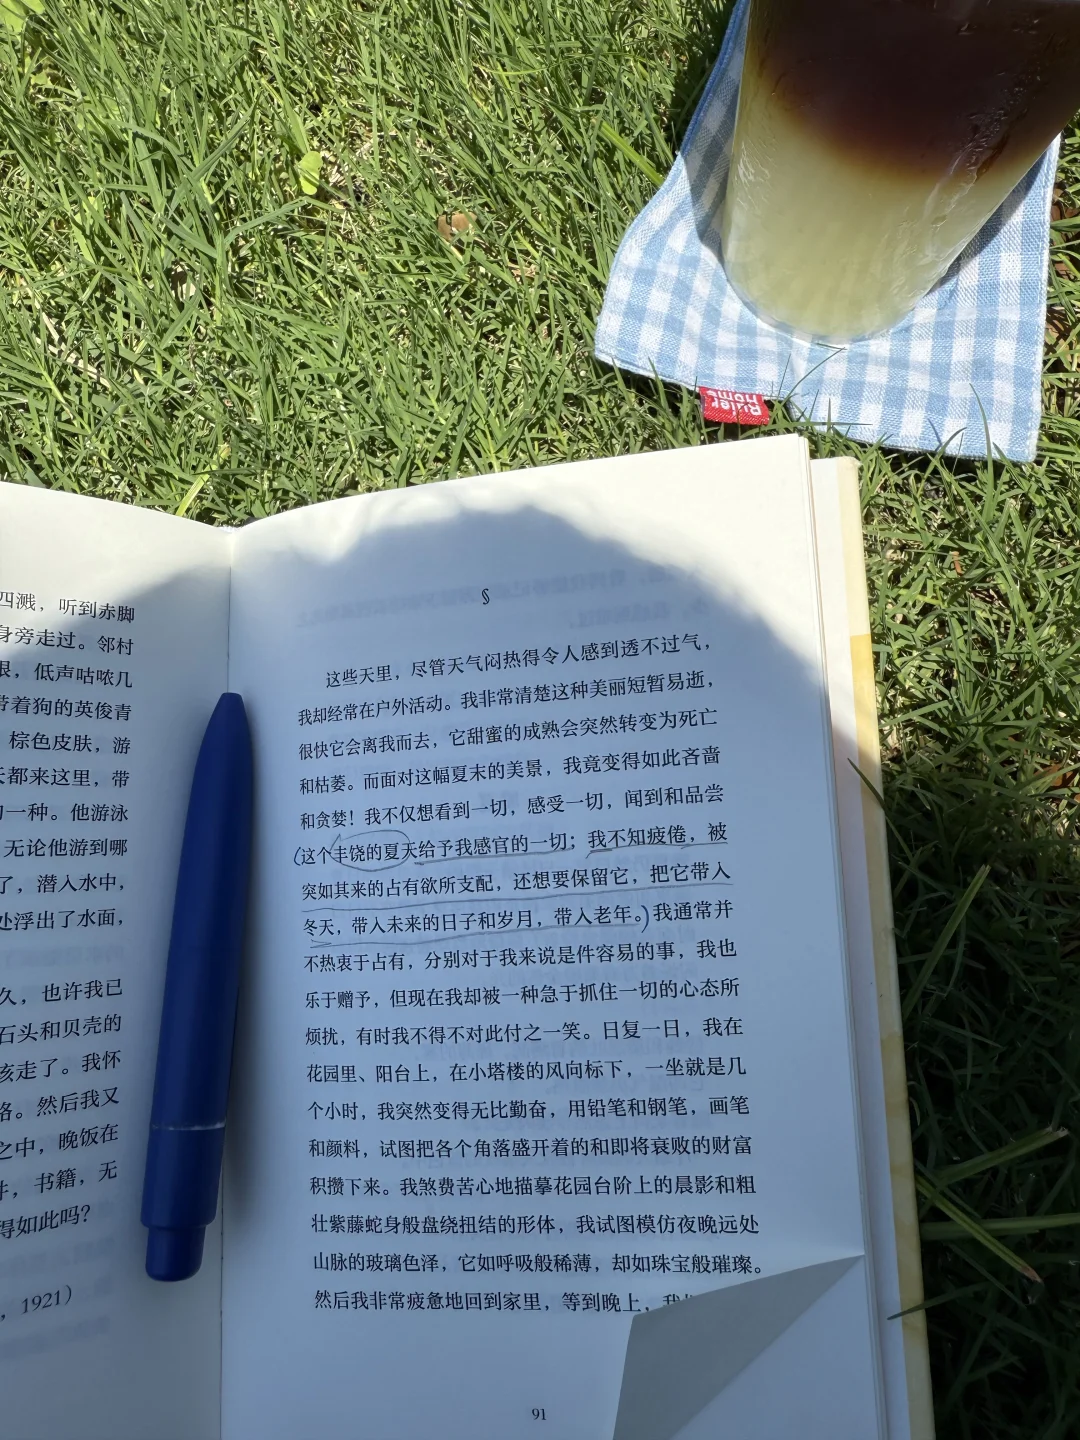 Ruiet
home
四溅，听到赤脚
身旁走过。邻村
眼，低声咕哝几
带着狗的英俊青
棕色皮肤，游
天都来这里，带
的一种。他游泳
无论他游到哪
了，潜入水中，
处浮出了水面，
久，也许我已
石头和贝壳的
该走了。我怀
格。然后我又
之中，晚饭在
件，书籍，无
得如此吗？
，1921）
§
这些天里，尽管天气闷热得令人感到透不过气，
我却经常在户外活动。我非常清楚这种美丽短暂易逝，
很快它会离我而去，它甜蜜的成熟会突然转变为死亡
和枯萎。而面对这幅夏末的美景，我竟变得如此吝啬
和贪婪！我不仅想看到一切，感受一切，闻到和品尝
这个丰饶的夏天给予我感官的一切；我不知疲倦，被
突如其来的占有欲所支配，还想要保留它，把它带入
冬天，带入未来的日子和岁月，带入老年。我通常并
不热衷于占有，分别对于我来说是件容易的事，我也
乐于赠予，但现在我却被一种急于抓住一切的心态所
烦扰，有时我不得不对此付之一笑。日复一日，我在
花园里、阳台上，在小塔楼的风向标下，一坐就是几
个小时，我突然变得无比勤奋，用铅笔和钢笔，画笔
和颜料，试图把各个角落盛开着的和即将衰败的财富
积攒下来。我煞费苦心地描摹花园台阶上的晨影和粗
壮紫藤蛇身般盘绕扭结的形体，我试图模仿夜晚远处
山脉的玻璃色泽，它如呼吸般稀薄，却如珠宝般璀璨。
然后我非常疲惫地回到家里，等到晚上，我
91